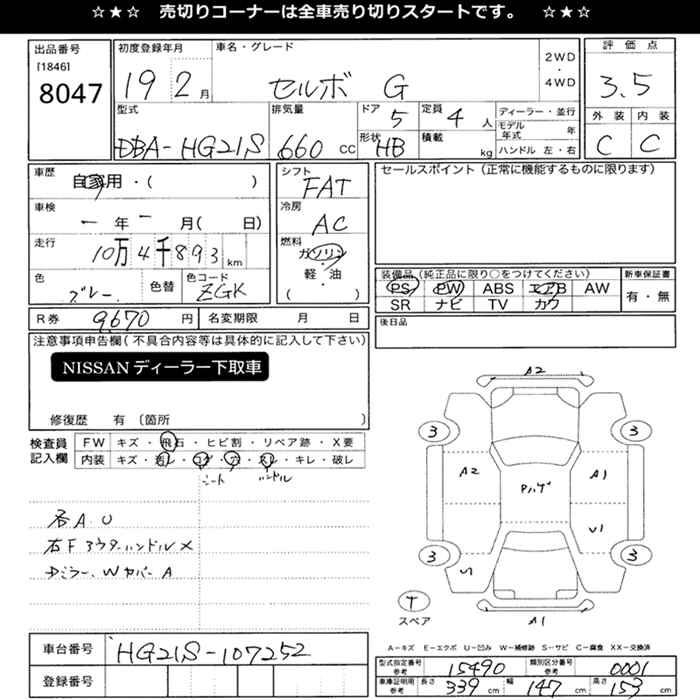 ☆★☆ 売切りコーナーは全車売り切りスタートです。 ☆★☆
出品番号
[1846]
8047
初度登録年月
19 2月
車名・グレード
セルボ G
2WD
・
4WD
評価点
3.5
外装 内装
C C
型式
DBA-HG21S
排気量
660 cc
ドア
5
形状
HB
定員
4人
積載
kg
ディーラー・並行
モデル年式 年
ハンドル 左・右
車歴
自家用・( )
車検
ー年ー月( 日)
走行
10万4千893km
色
グレー
色替
色コード
ZGK
シフト
FAT
冷房
AC
燃料
ガソリン
・
軽・油
( )
セールスポイント(正常に機能するものに限ります)
装備品(純正品に限り○をつけてください)
PS PW ABS エアB AW
SR ナビ TV カワ
新車保証書
有・無
R券 9,670円
名変期限 月 日
後日品
注意事項申告欄(不具合内容等は具体的に記入して下さい)
NISSANディーラー下取車
修復歴 有〔箇所 〕
検査員
記入欄
FW キズ・飛石・ヒビ割・リペア跡・X要
内装 キズ・汚レ・コゲ・穴・スレ・キレ・破レ
シート ハンドル
各A.U
右FアウターハンドルX
ドミラー、WカバーA
A2
3 3
A2 A1
Pハゲ
U1
3 3
A1
T
スペア
A-キズ E-エクボ U-凹み W-補修跡 S-サビ C-腐食 XX-交換済
車台番号 HG21S-107252
登録番号
型式指定番号
参考
15490
類別区分番号
参考
0001
車庫証明用
参考
長さ 339cm 幅 147cm 高さ 153cm